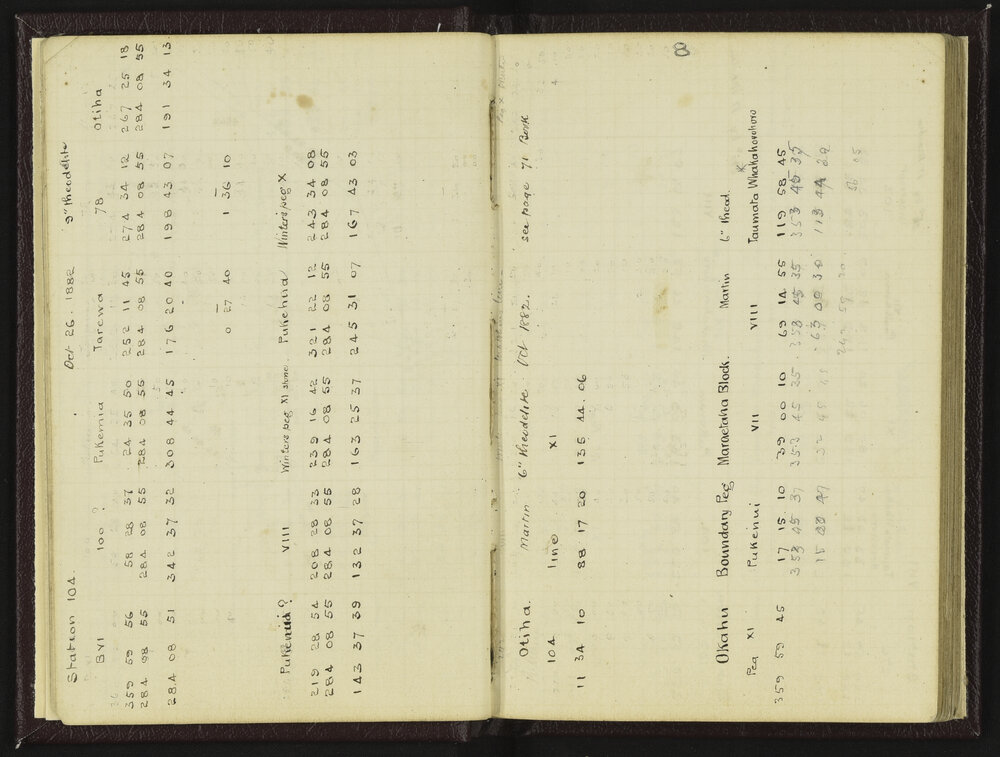 Station 104. Oct 26. 1882 9" theodelite
BVI 100 ? Pukemia Tarewa 78 Otiha
359 59 56 58 28 37 24 35 50 252 11 45 274 34 12 267 25 18
284 08 55 284 08 55 284 08 55 284 08 55 284 08 55 284 08 55
284 08 51 342 37 32 308 44 45 176 20 40 198 43 07 191 34 13
0 27 40 1 36 10
Pukenui? VIII Winters peg XI stones. Pukehua Winters peg X
219 28 54 208 28 33 239 16 42 321 22 12 243 34 08
284 08 55 284 08 55 284 08 55 284 08 55 284 08 55
143 37 39 132 37 28 163 25 37 245 31 07 167 43 03
8
Otiha. Martin 6" theodelite. Oct 1882. see page 71 Book 4
104 line XI
11 34 10 88 17 20 135 44.06
Okahu Boundary Peg Maraetaha Block. Martin 6" thead.
Peg XI Pukenui VII VIII Taumata Whakahorohoro
359 59 45 17 15 10 39 00 10 69 14 55 119 58 45
353 45 37 353 45 35 353 45 35 353 45 35